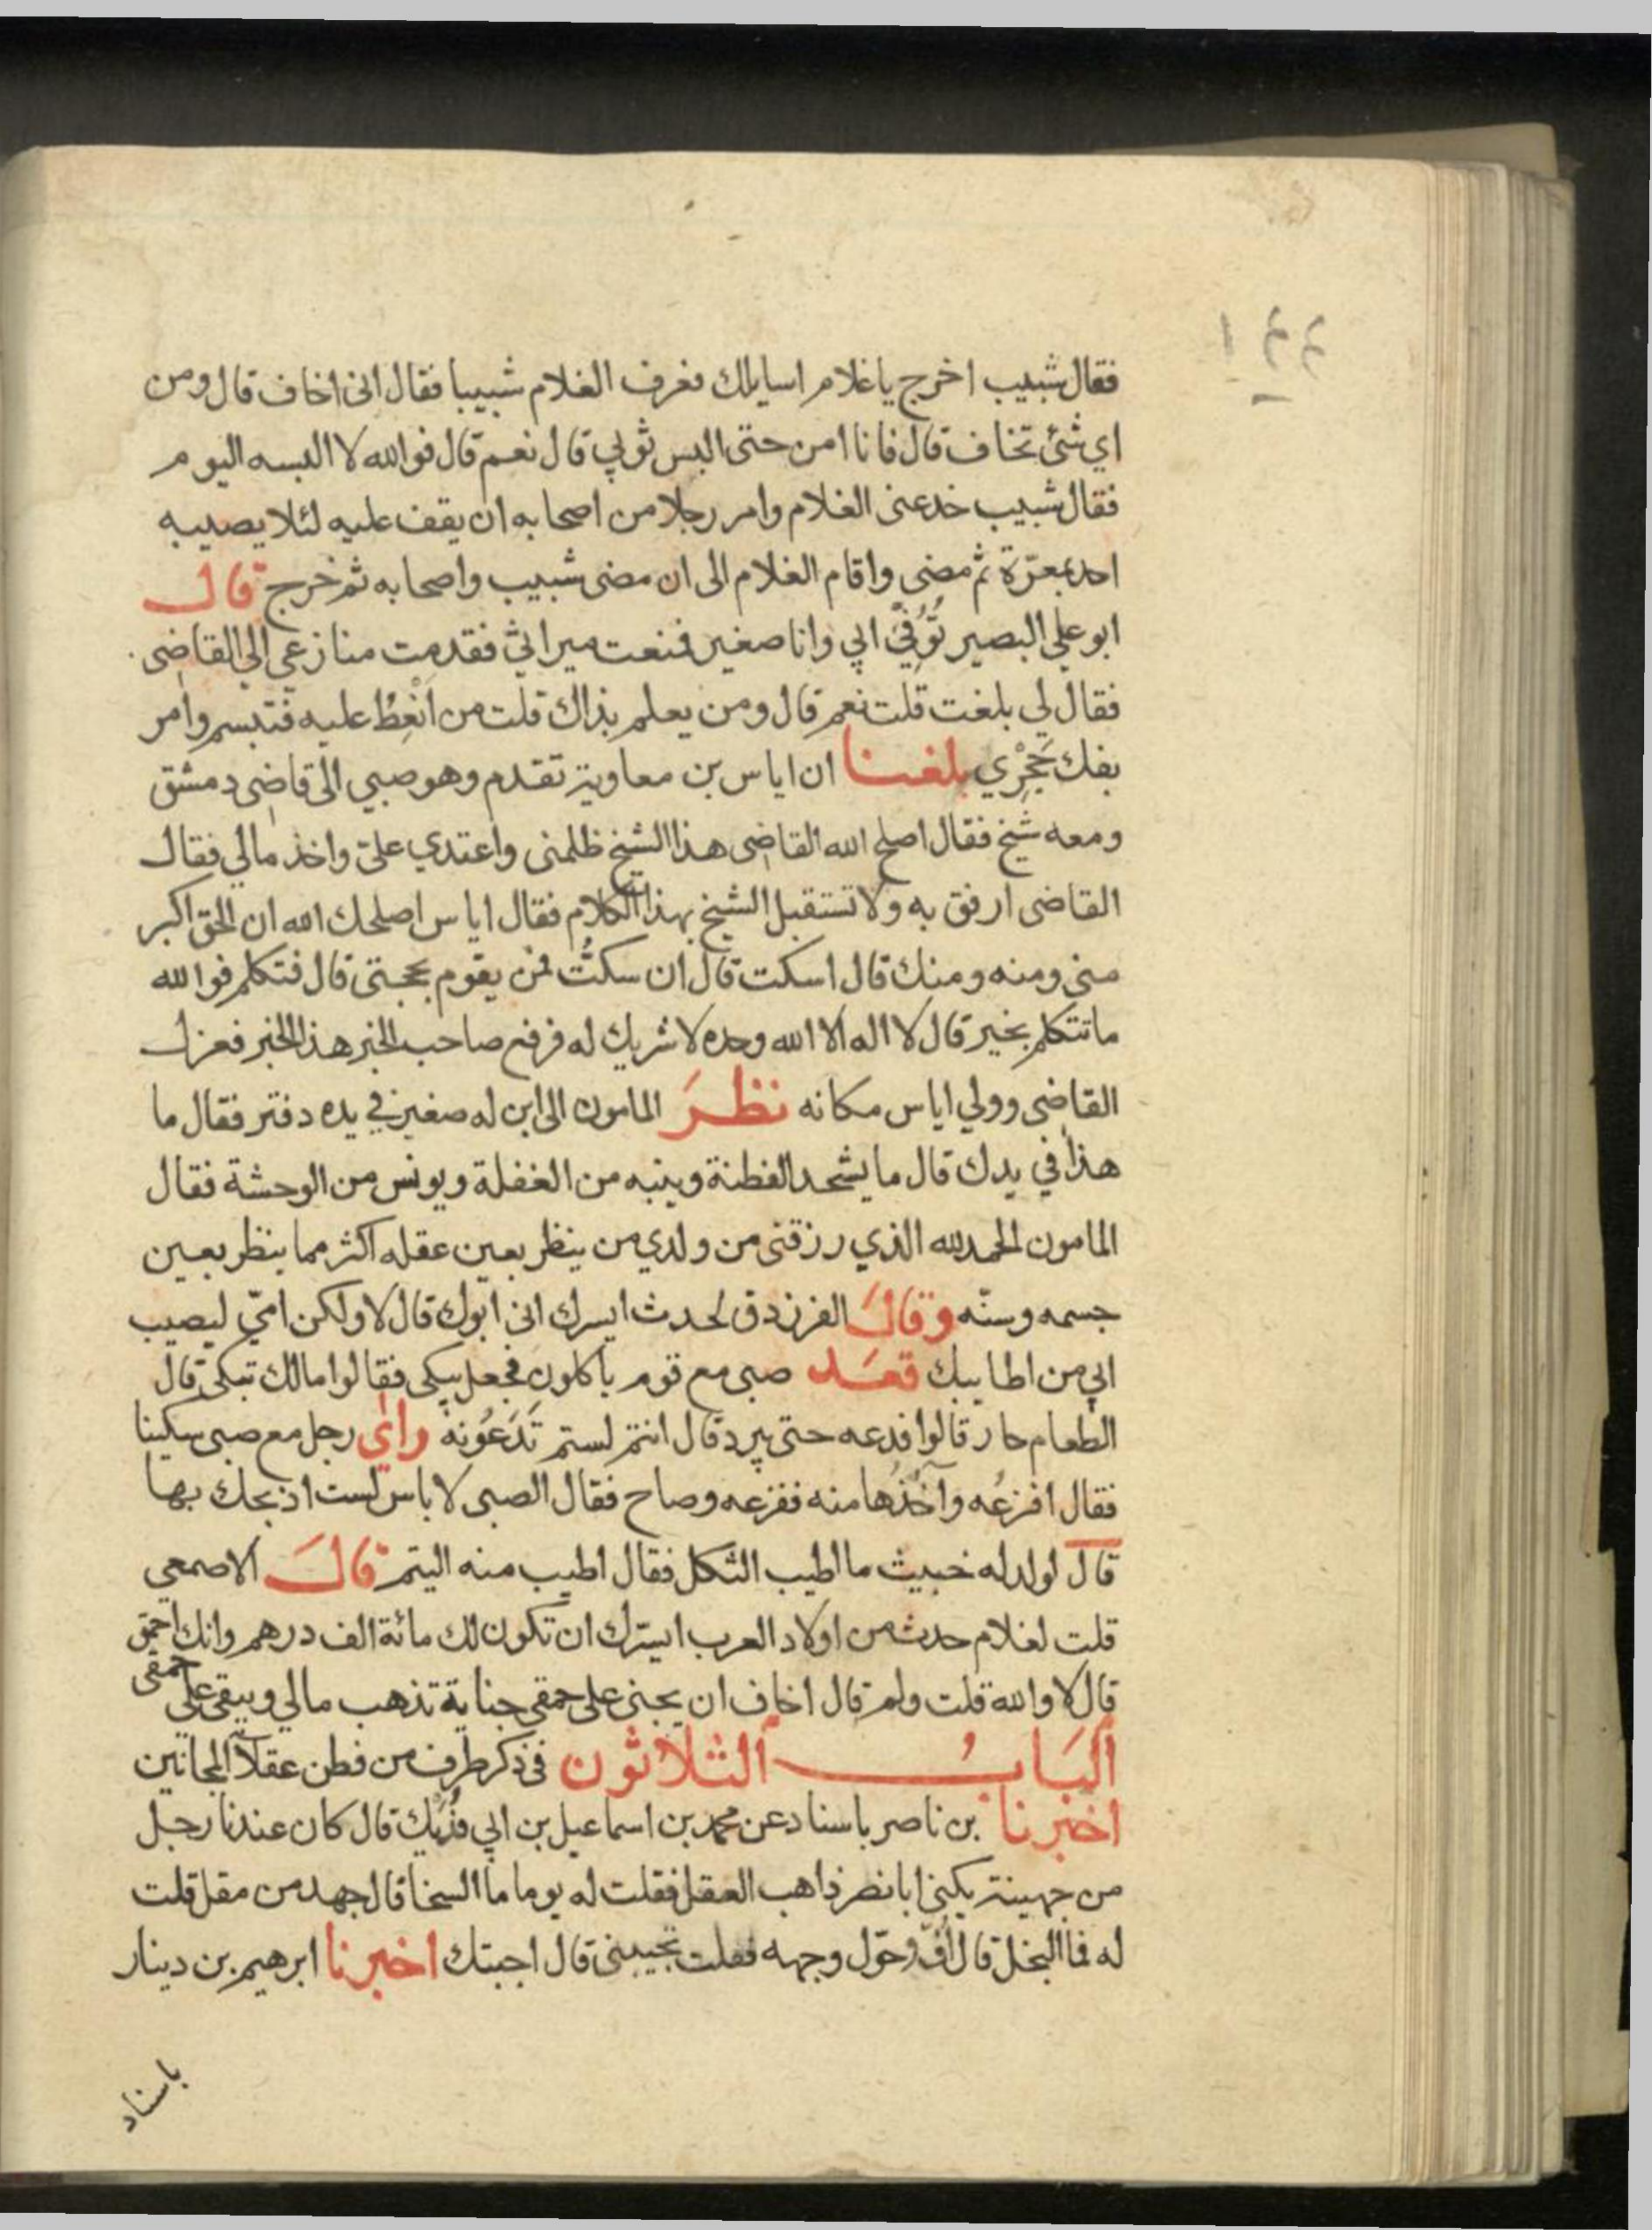 ١٤٤
فقال شبيب اخرج ياغلام اسايلك فعرف الغلام شبيبا فقال انى اخاف قال ومن
اي شئ تخاف قال فانا امن حتى البس ثوبي قال نعم قال فوالله لا البسه اليوم
فقال شبيب خدعنى الغلام وامر رجلا من اصحابه ان يقف عليه لئلا يصيبه
احد بمعرّة ثم مضى واقام الغلام الى ان مضى شبيب واصحابه ثم خرج قال
ابو علي البصير تُوُفِّيَ ابي وانا صغير فمنعت ميراثي فقدمت منازعي الي القاضى
فقال لي بلغت قلت نعم قال ومن يعلم بذاك قلت من انْعِظُ عليه فتبسم وامر
بفك حَجْرِي بلغنا ان اياس بن معاوية تقدم وهو صبي الى قاضى دمشق
ومعه شيخ فقال اصلح الله القاضى هذا الشيخ ظلمنى واعتدي علىّ واخذ مالي فقال
القاضى ارفق به ولا تستقبل الشيخ بهذا الكلام فقال اياس اصلحك الله ان الحق اكبر
منى ومنه ومنك قال اسكت قال ان سكتُّ فمن يقوم بحجتى قال فتكلم فوالله
ما تتكلم بخير قال لا اله الا الله وحده لا شريك له فرفع صاحب الخبر هذا الخبر فعزل
القاضى وولي اياس مكانه نظرَ المامون الى ابن له صغير في يده دفتر فقال ما
هذا في يدك قال ما يشحد الفطنة وينبه من الغفلة ويونس من الوحشة فقال
المامون الحمد لله الذي رزقنى من ولدي من ينظر بعين عقله اكثر مما ينظر بعين
جسمه وسنّه وقالَ الفرزدق لحدث ايسرك انى ابوك قال لا ولكن امىّ ليصيب
ابي من اطايبك قعَد صبى مع قوم ياكلون فجعل يبكى فقالوا مالك تبكى قال
الطعام حار قالوا فدعه حتى يبرد قال انتم لستم تَدَعُونَهُ وراي رجل مع صبى سكينا
فقال افزعُه وآخُذُها منه ففزعه وصاح فقال الصبى لا باس لست اذبحك بها
قال لولد له خبيث ما اطيب الثكل فقال اطيب منه اليتم قالَ الاصمعي
قلت لغلام حدث من اولاد العرب ايسرّك ان تكون لك مائة الف درهم وانك احمق
قال لا والله قلت ولم قال اخاف ان يجنى على حمقى جناية تذهب مالي ويبقى علي حمقى
اَلبَابُ اَلثلاَثون فى ذكر طرف من فطن عقلآ المجانين
اخبرنا بن ناصر باسناد عن محمد بن اسماعيل بن ابي فُدَيك قال كان عندنا رجل
من جهينة يكنى ابا نصر ذاهب العقل فقلت له يوما ما السخا قال جهد من مقل قلت
له فما البخل قال اُفّ وحوّل وجهه فقلت تجيبنى قال اجبتك اخبرنا ابرهيم بن دينار
باسناد